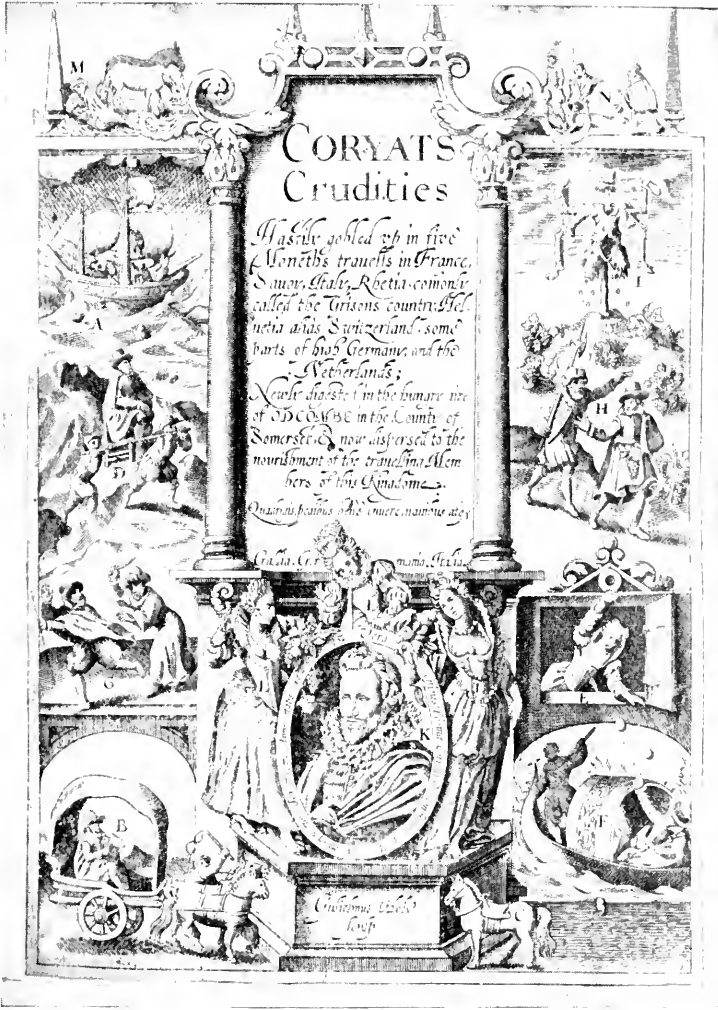 M
N
CORYATS
Crudities
Hastily gobled vp in five
Moneths travells in France,
Savoy, Italy, Rhetia comonly
called the Grisons country, Hel-
vetia aliàs Switzerland, some
parts of high Germany, and the
Netherlands;
Newly digested in the hungry aire
of ODCOMBE in the County of
Somerset, & now dispersed to the
nourishment of the travelling Mem-
bers of this Kingdome.
Gallia. Ger mania. Italia.
A
I
D
H
C
E
K
B
F
Gulielmus Hole
sculp